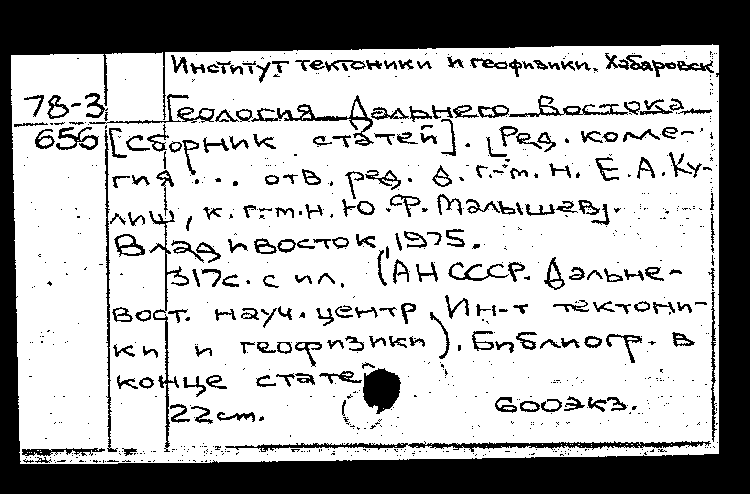 Институт тектоники и геофизики. Хабаровск.
78-3 Геология Дальнего Востока
656 [Сборник статей]. [Ред. колле-
гия ... отв. ред. д. г.-м. н. Е.А. Ку-
лиш, к. г.-м.н. Ю.Ф. Малышев].
Владивосток, 1975.
317с. с ил. (АН СССР. Дальне-
вост. науч. центр, Ин-т тектони-
ки и геофизики). Библиогр. в
конце статей
22 см. 600экз.